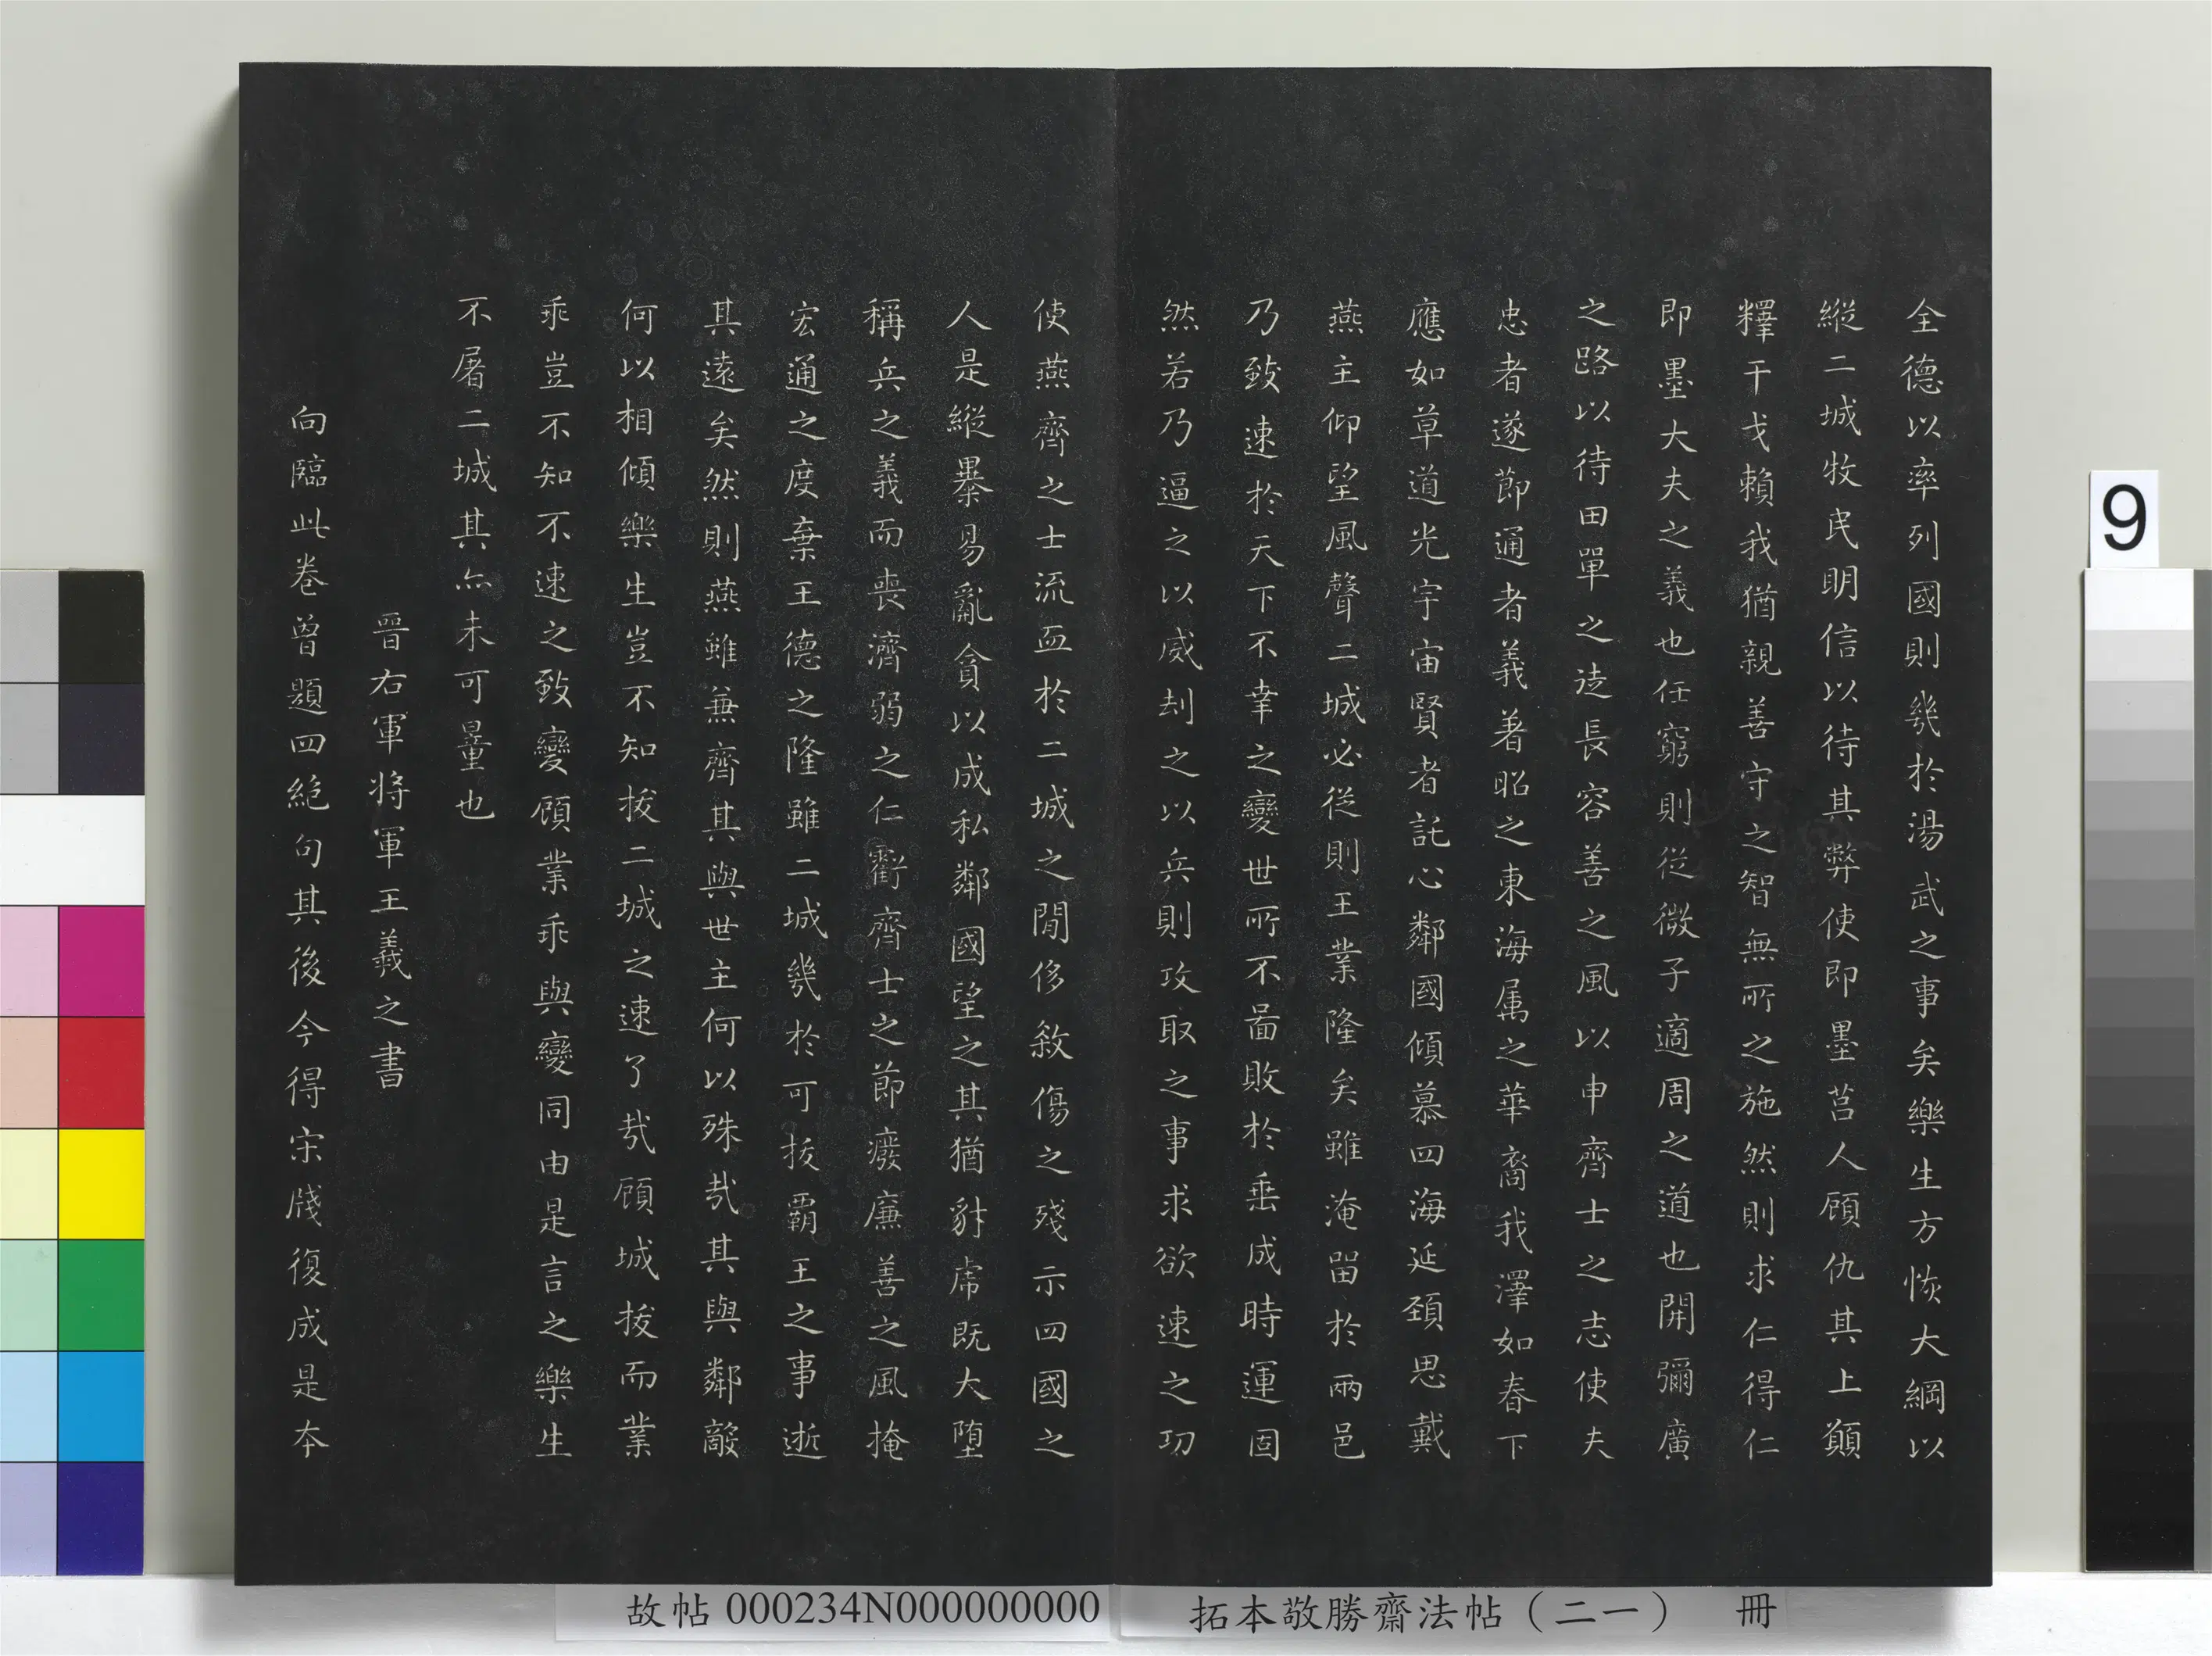 全德以率列國則幾於湯武之事矣樂生方恢大綱以
縱二城牧民明信以待其弊使即墨莒人顧仇其上願
釋干戈賴我猶親善守之智無所之施然則求仁得仁
即墨大夫之義也任窮則從微子適周之道也開彌廣
之路以待田單之徒長容善之風以申齊士之志使夫
忠者遂節通者義著昭之東海属之華裔我澤如春下
應如草道光宇宙賢者託心鄰國傾慕四海延頚思戴
燕主仰望風聲二城必從則王業隆矣雖淹留於兩邑
乃致速於天下不幸之變世所不啚敗於垂成時運固
然若乃逼之以威刦之以兵則攻取之事求欲速之功
使燕齊之士流血於二城之閒侈敘傷之殘示四國之
人是縱暴易亂貪以成私鄰國望之其猶豺虎既大堕
稱兵之義而喪濟弱之仁虧齊士之節癈廉善之風掩
宏通之度棄王德之隆雖二城幾於可拔霸王之事逝
其遠矣然則燕雖兼齊其與世主何以殊哉其與鄰敵
何以相傾樂生豈不知拔二城之速了哉顧城拔而業
乖豈不知不速之致變顧業乖與變同由是言之樂生
不屠二城其亦未可量也
晉右軍將軍王羲之書
向臨此卷曾題四絕句其後今得宋牋復成是本
9
故帖 000234N000000000
拓本敬勝齋法帖（二一） 冊